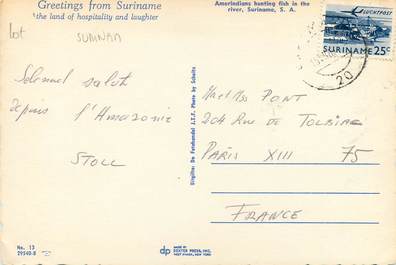 Greetings from Suriname
the land of hospitality and laughter
Amerindians hunting fish in the
river, Suriname, S. A.
LUCHTPOST
SURINAME 25c
20
Lot
SURINAM
Solennel salut
depuis l'Amazonie
STOLL
Uitgifte: De Feteshandel J.T.F. Photo by Schults
Mr et Mss PONT
204 Rue DE TOLBIAC
PARIS XIII 75
FRANCE
No. 13
29540-B
dp
MADE BY
DEXTER PRESS, INC.
WEST NYACK, NEW YORK